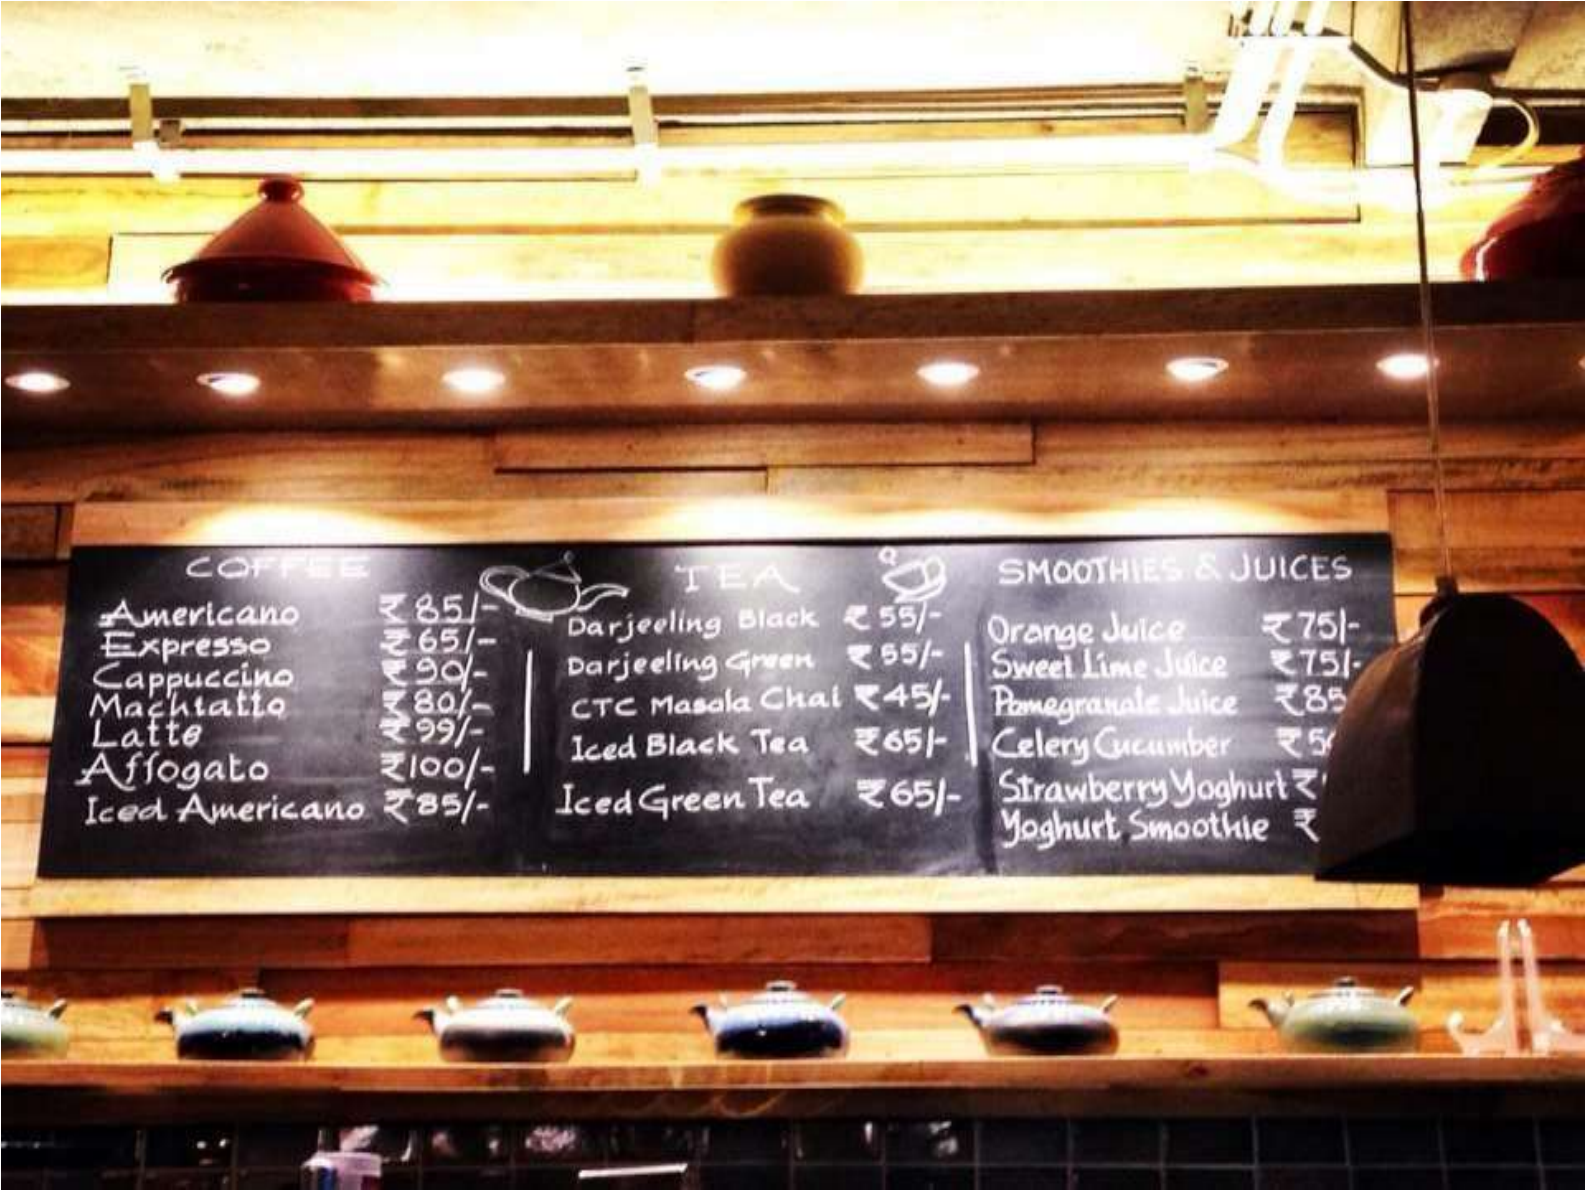 COFFEE
Americano ₹85/-
Expresso ₹65/-
Cappuccino ₹90/-
Machiatto ₹80/-
Latte ₹99/-
Affogato ₹100/-
Iced Americano ₹85/-
TEA
Darjeeling Black ₹55/-
Darjeeling Green ₹55/-
CTC Masala Chai ₹45/-
Iced Black Tea ₹65/-
Iced Green Tea ₹65/-
SMOOTHIES & JUICES
Orange Juice ₹75/-
Sweet Lime Juice ₹75/-
Pomegranate Juice ₹85
Celery Cucumber ₹5
Strawberry Yoghurt ₹
Yoghurt Smoothie ₹